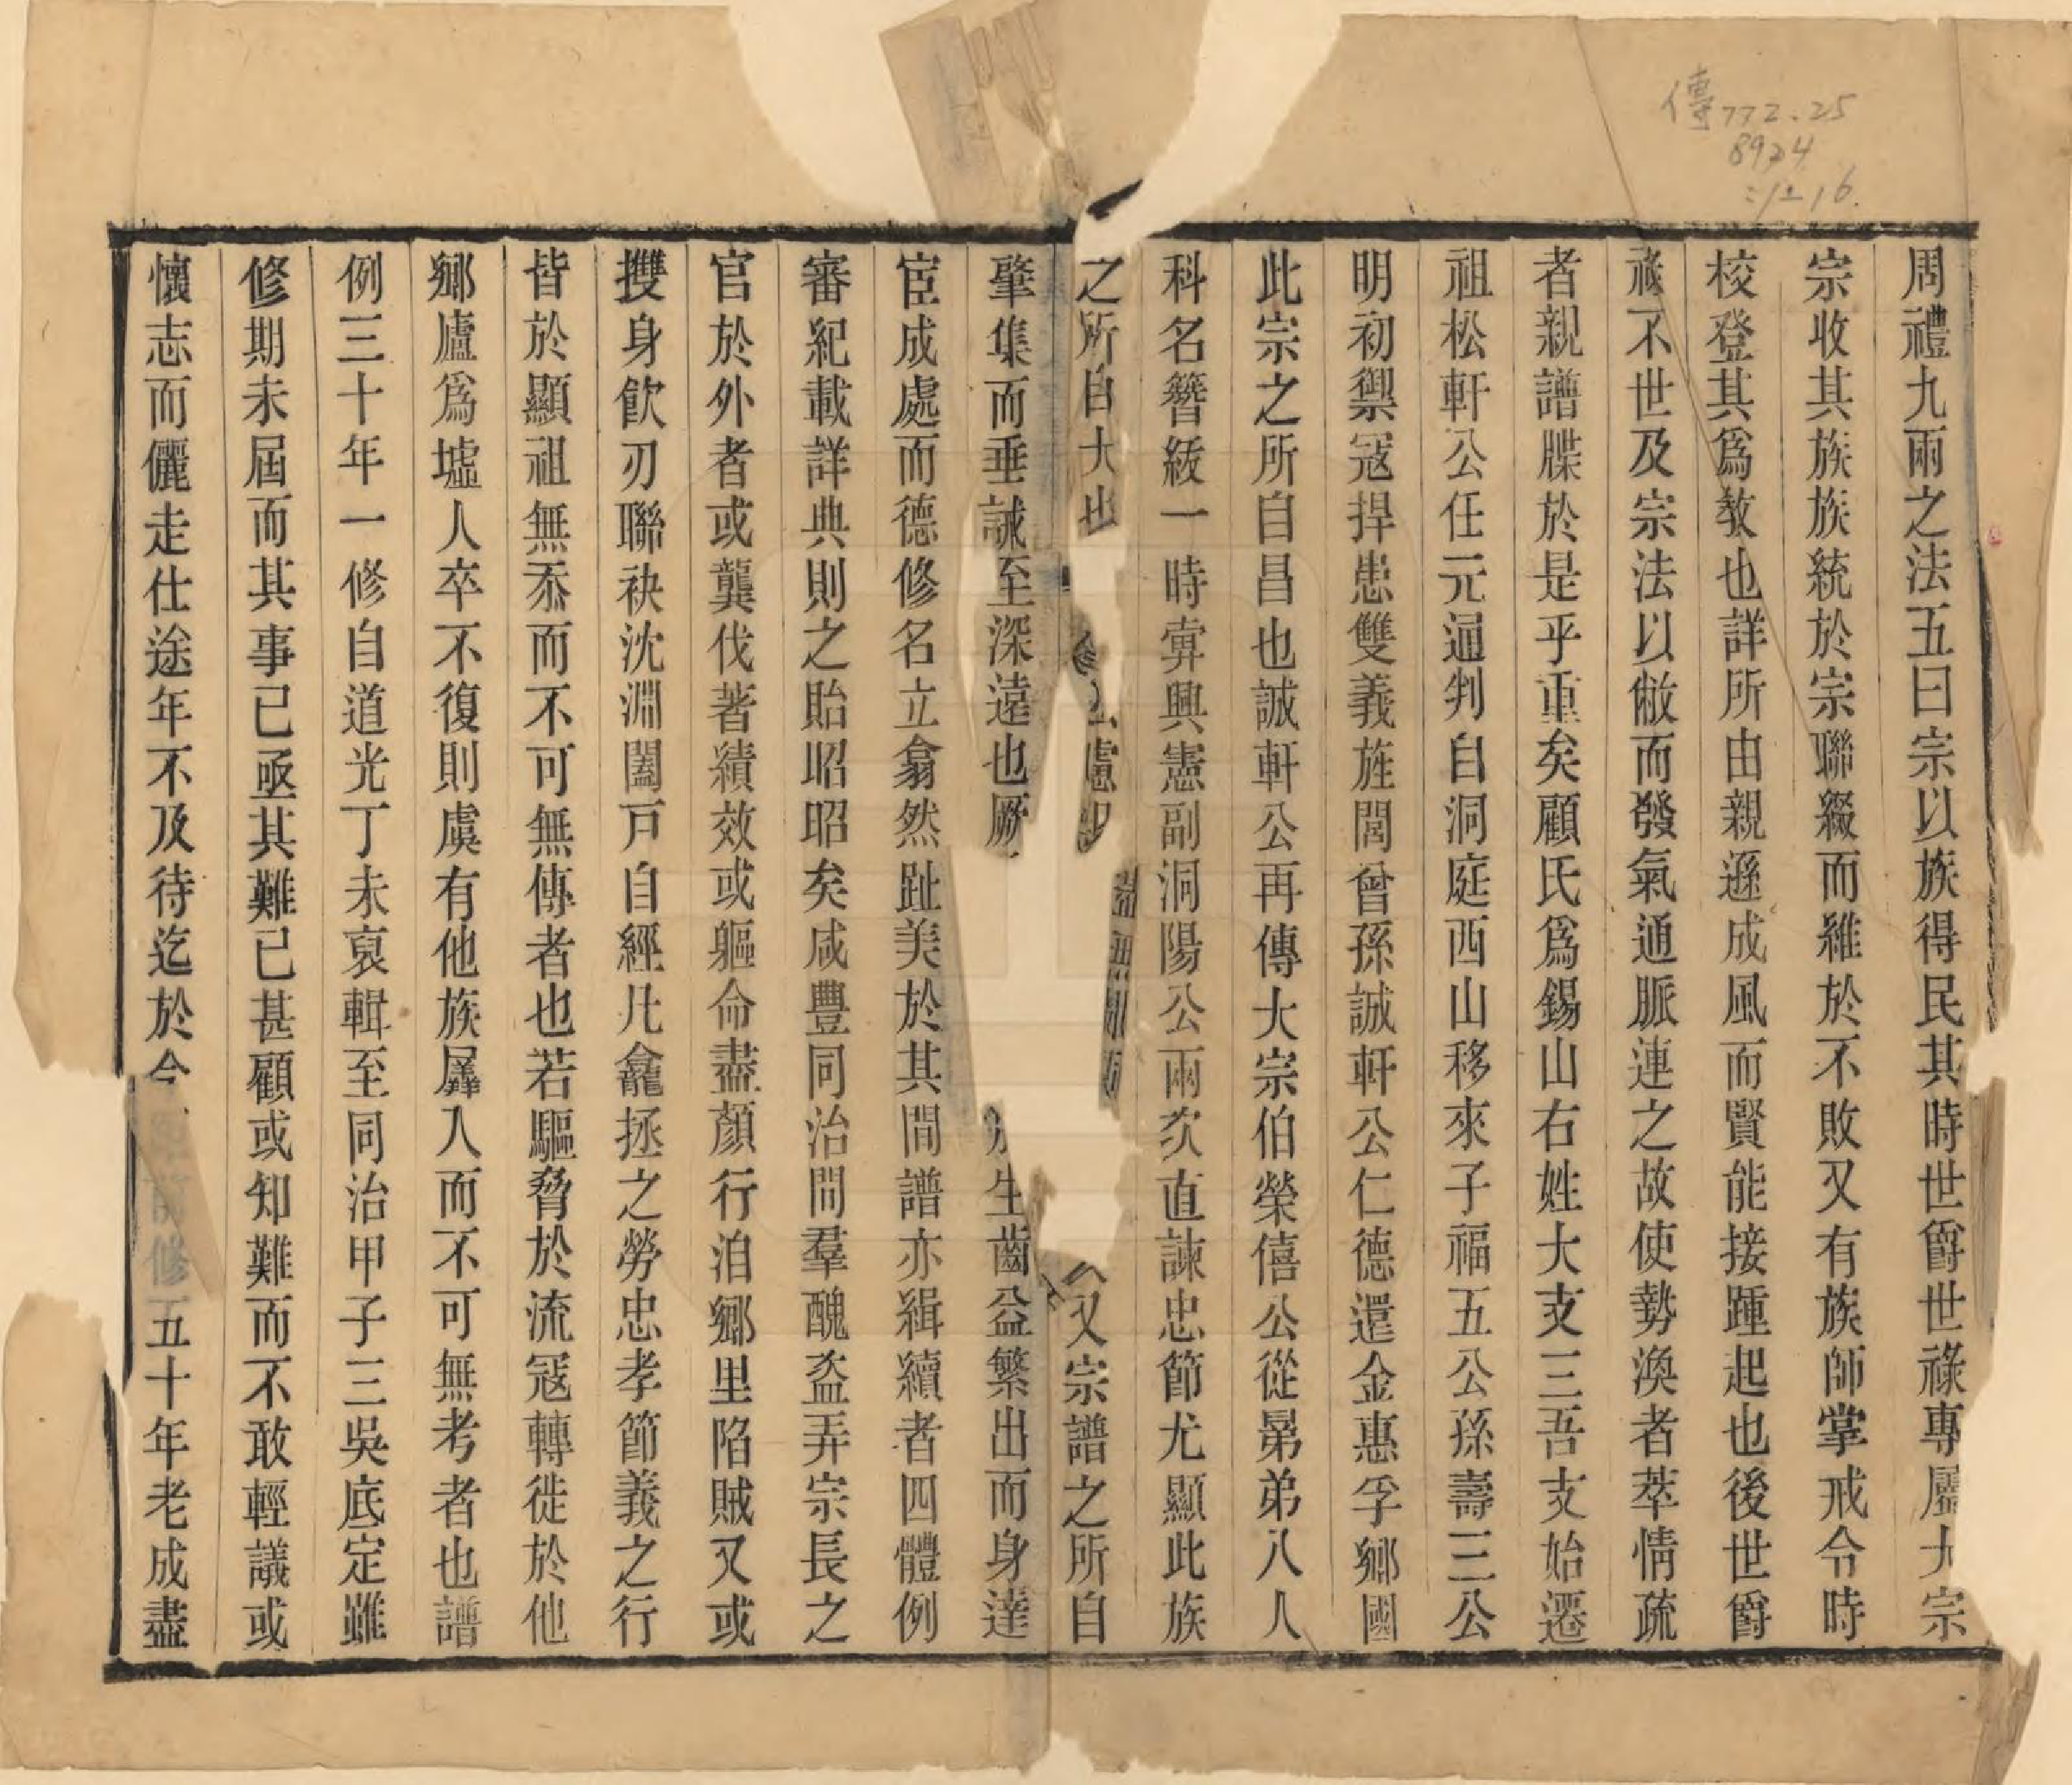 傳772.25
8924
:1-16.
周禮九兩之法五曰宗以族得民其時世爵世祿專屬大宗
宗收其族族統於宗聯綴而維於不敗又有族師掌戒令時
校登其爲教也詳所由親遜成風而賢能接踵起也後世爵
祿不世及宗法以敝而發氣通脈連之故使勢渙者萃情疏
者親譜牒於是乎重矣顧氏爲錫山右姓大支三吾支始遷
祖松軒公任元通判自洞庭西山移來子福五公孫壽三公
明初禦寇捍患雙義旌閭曾孫誠軒公仁德還金惠孚鄉國
此宗之所自昌也誠軒公再傳大宗伯榮僖公從晜弟八人
科名簪紱一時霁興憲副洞陽公兩次直諫忠節尤顯此族
之所自大也
又宗譜之所自
肇集而垂誡至深遠也厥
生齒益繁出而身達
宦成處而德修名立翕然趾美於其間譜亦緝續者四體例
審紀載詳典則之貽昭昭矣咸豐同治間羣醜盜弄宗長之
官於外者或襲伐著績效或軀命盡顏行洎鄉里陷賊又或
攖身飲刃聯袂沈淵闔戶自經凡龕拯之勞忠孝節義之行
皆於顯祖無忝而不可無傳者也若驅脅於流寇轉徙於他
鄉廬爲墟人卒不復則虞有他族羼入而不可無考者也譜
例三十年一修自道光丁未裒輯至同治甲子三吳底定雖
修期未屆而其事已亟其難已甚顧或知難而不敢輕議或
懷志而儷走仕途年不及待迄於今距前修五十年老成盡